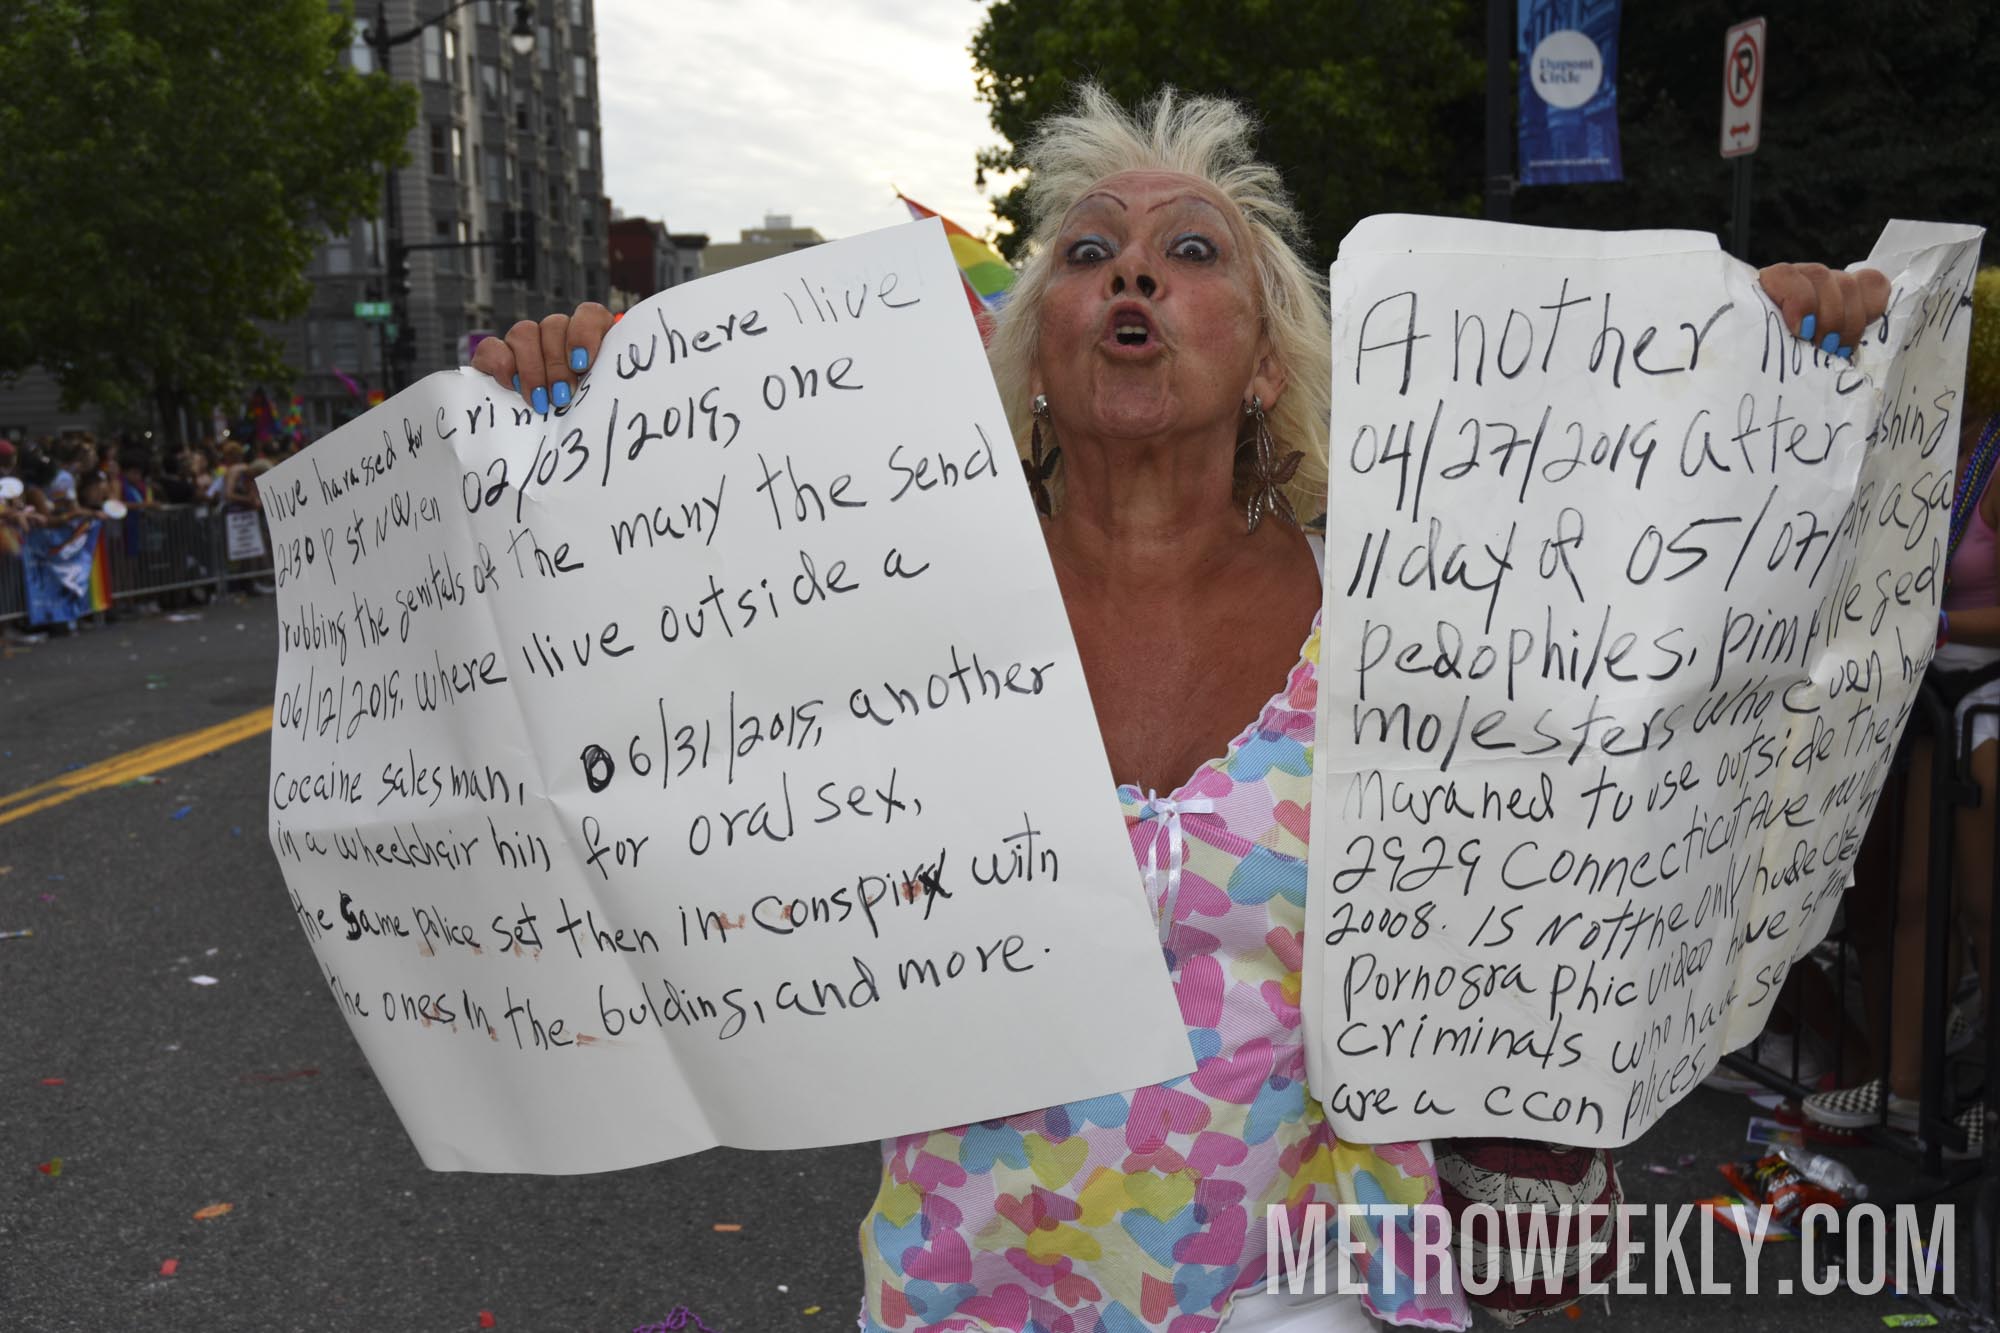 I live harassed for crimes where I live
2130 P st NW, en 02/03/2019, one
rubbing the genitals of the many the send
06/12/2019. where I live outside a
cocaine salesman, 06/31/2019, another
in a wheelchair him for oral sex,
the same police set then in conspir with
the ones in the bulding, and more.
Another
04/27/2019 after
11 day of 05/07/ aga
pedophiles, pim
molesters who
Maraned to use outside the
2929 Connecticut Ave NW
20008. IS Not the only nude
Pornographic video have
criminals who have
are a ccon plices,
Dupont
Circle
P
METROWEEKLY.COM